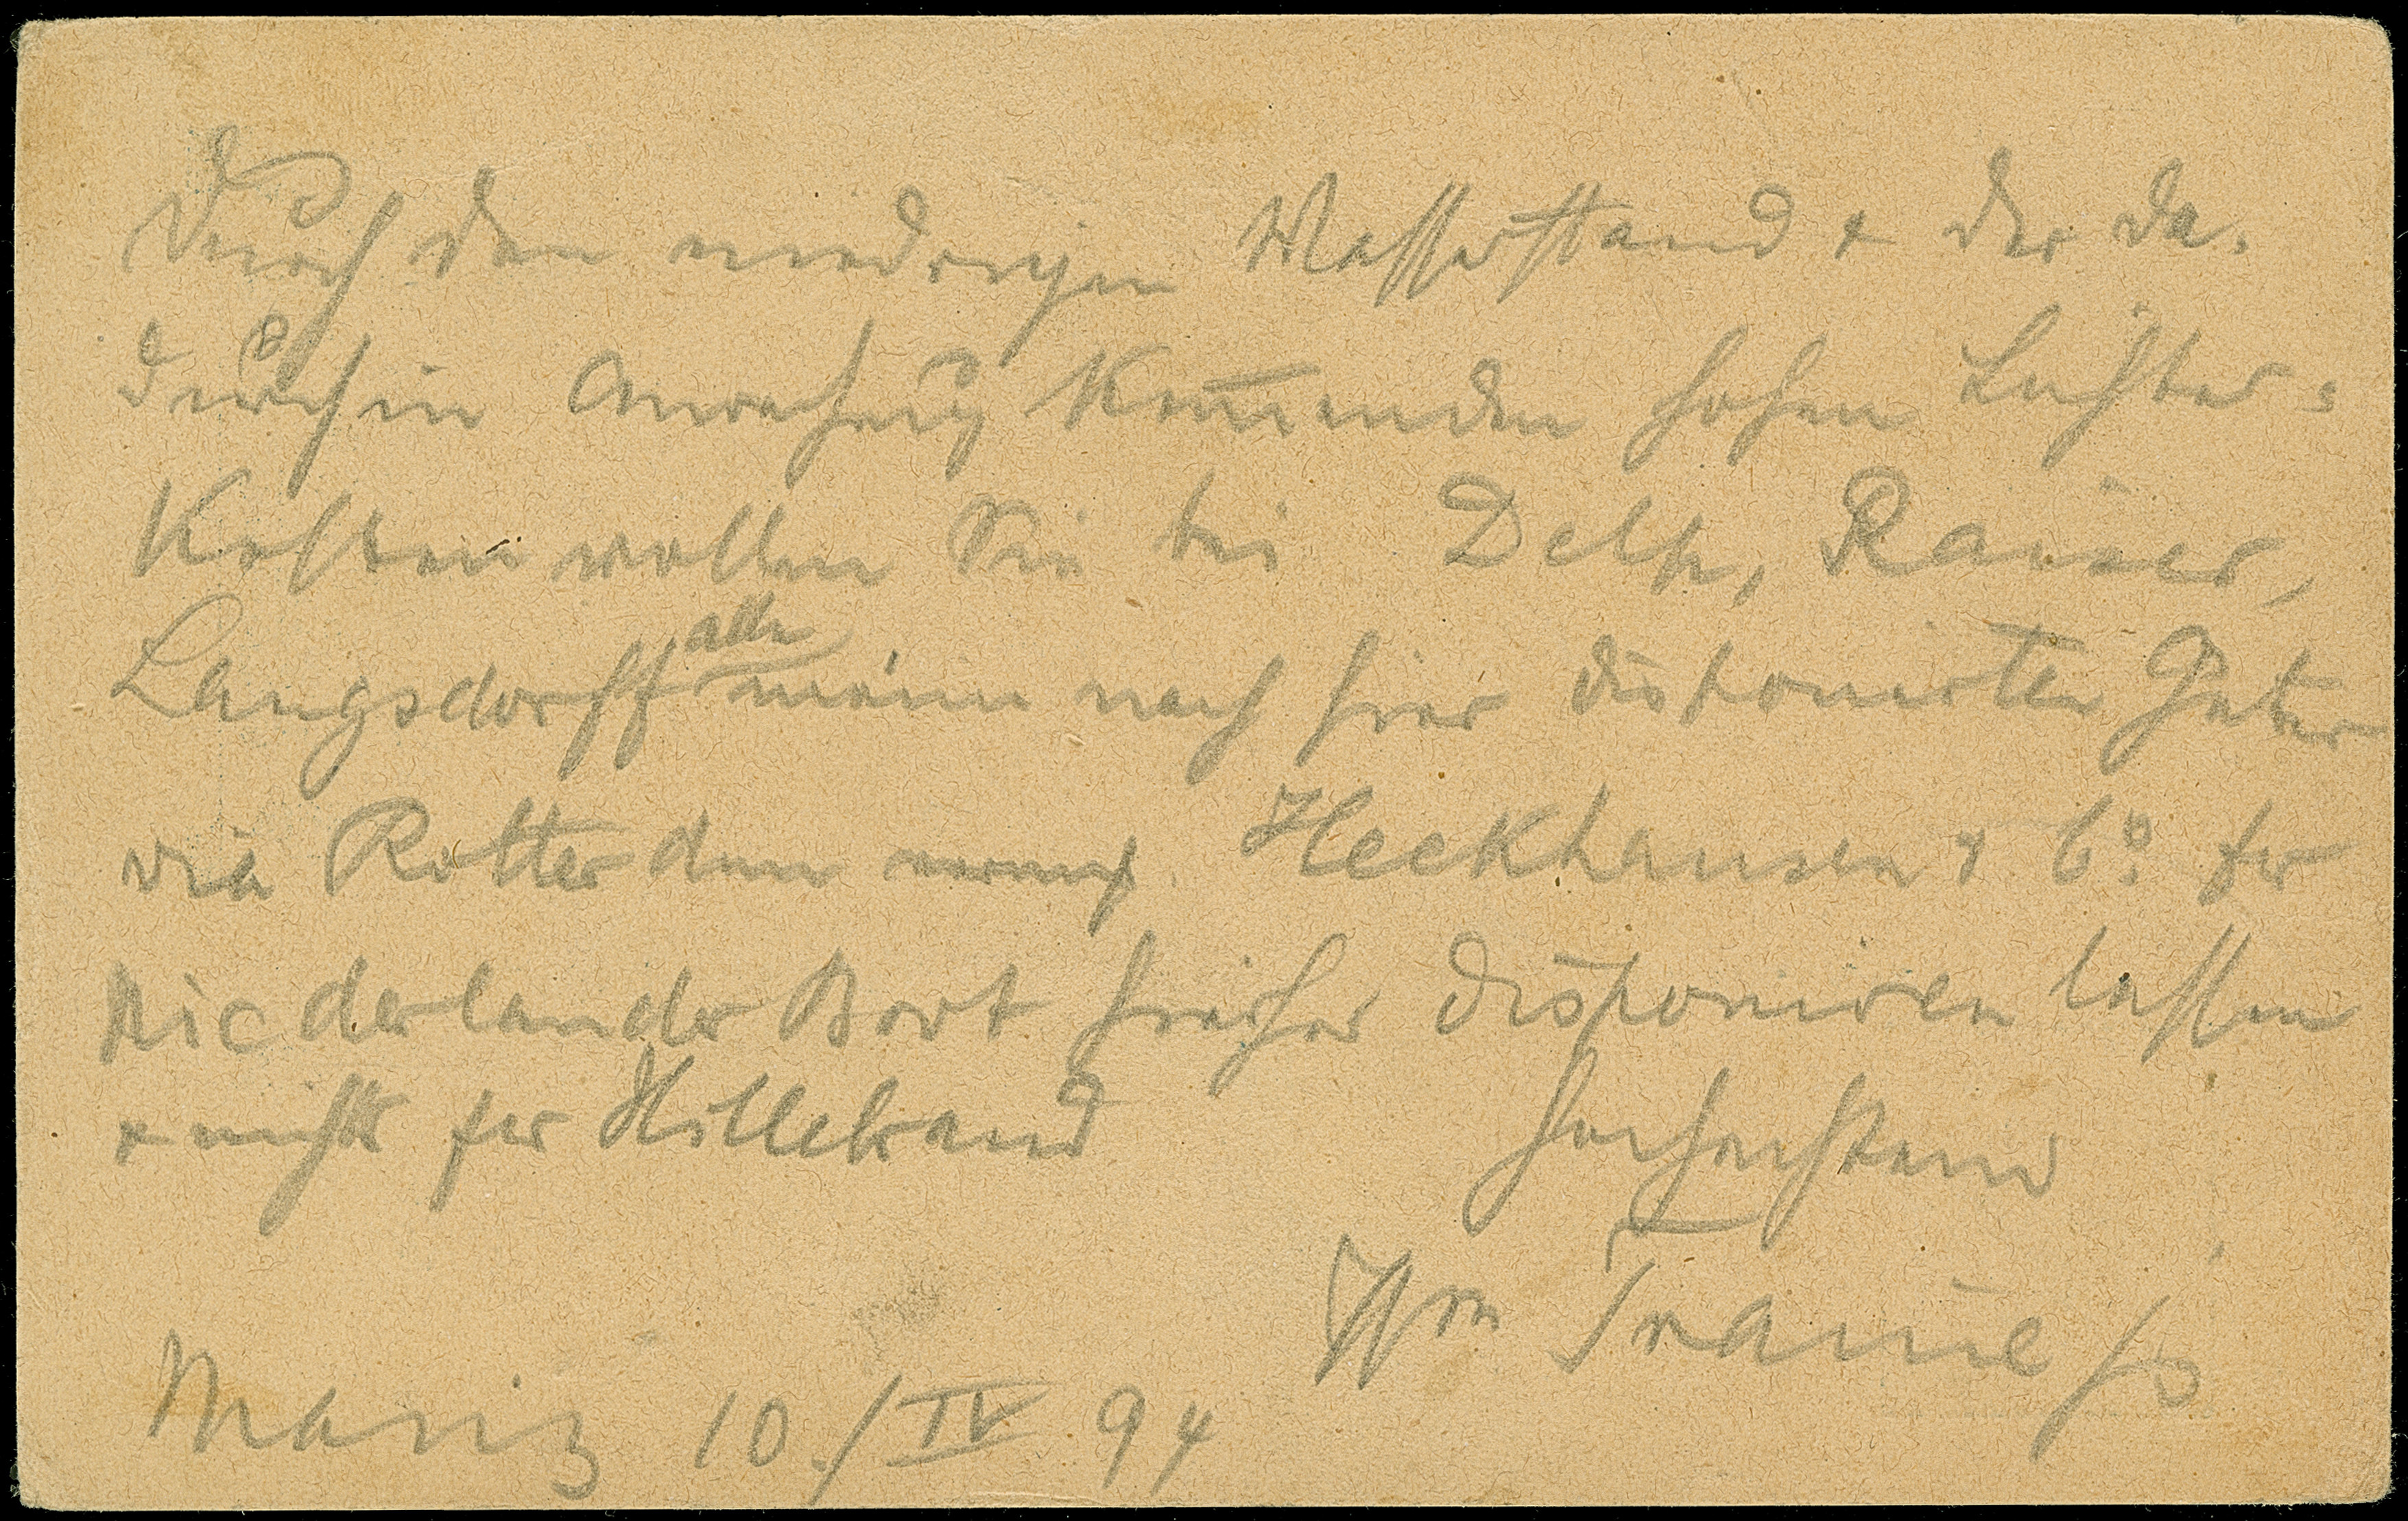 Durch den niedrigen Wasserstand & der da-
durch in Anrechnung kom̅enden hohen Leichter=
Kosten wollen Sie bei Delp, Raiser,
Langsdorff alle meine nach hier disponirten Güter
via Rotterdam Heckhausen & Co. per
Niederlander Boot hierher disponiren lassen
& nicht per Hillebrand
Hochachtend
Wm
Mainz 10./IV 94